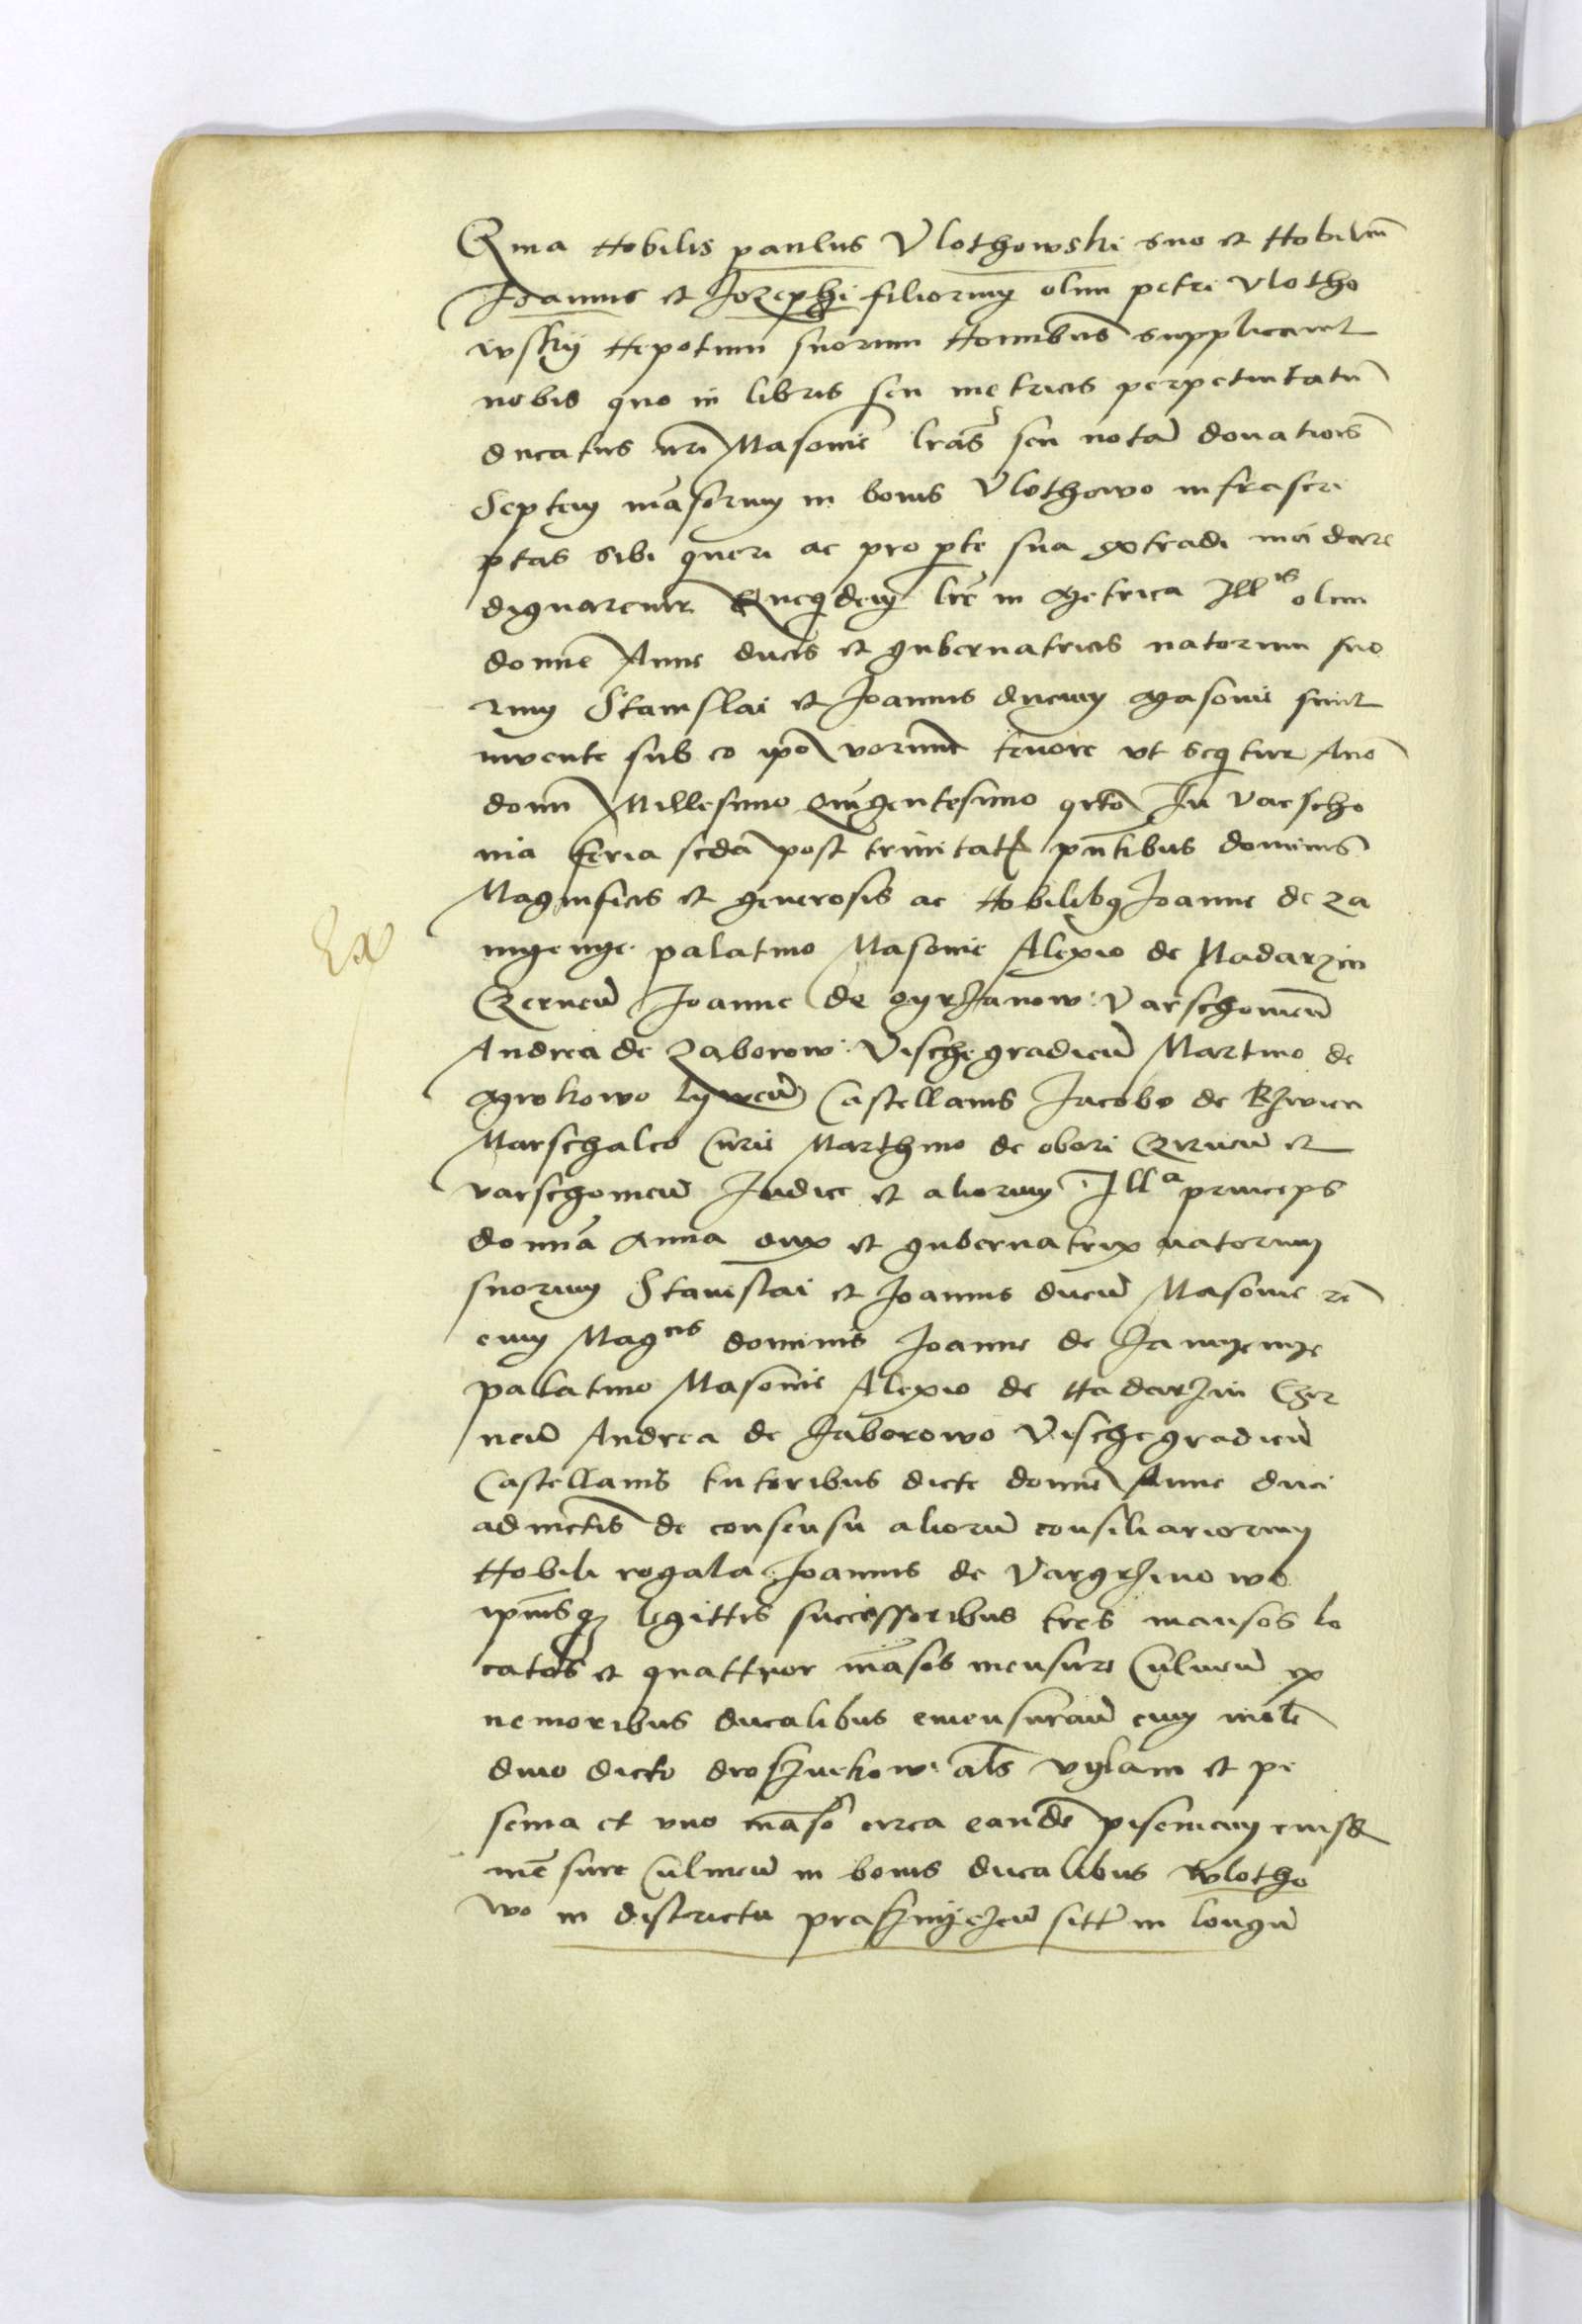 Quia Nobilis paulus Vlothowski suo et Nobiliũ
Joannis et Jozephi filiorum olim petri vlotho
wsky Nepotum suorum Nominibus supplicavit
nobis quo in libris seu metricis perpetuitatũ
ducatus nri Masovie lras seu notam donationis
Septem mãsorum in bonis Vlothowo infrascri
ptas sibi queri ac pro pte sua extradi mãdare
dignaremur Quequidem lre in Metrica Ill^is olim
domine Anne ducis et gubernatricis natorum suo
rum Stanislai et Joannis ducum Masovie sunt
invente sub eo ipõ verum tenore vt sequitur Anõ
domi Millesimo Quingentesimo qrto In varscho
nia feria scda post trinitatis pñtibus dominis
Magnificis et generosis ac Nobilibus Joanne de za
Ex
mgenye palatino Masovie Alexio de Nadarzin
Czerneñ Joanne de Varschovieñ
Andrea de Zaborow Vischegradieñ Martino de
Mrokowo lyweñ Castellanis Jacobo de
Marschalco Curie Marthino de obori Czrneñ et
varschovieñ Judice et aliorum Ill^a princeps
domina Anna dux et gubernatrix natorum
suorum Stanislai et Joannis ducũ Masovie rē
cum Mag^cis dominis Joanne de
pallatino Masovie Alexio de Nadarzin Czer
neñ Andrea de Zaborowo Vischegradieñ
Castellanis tutoribus dicte domine Anne duci
adiunctis de consensu aliorũ consiliariorum
Nobili rogala Joannis de
ipsiusque legittis successoribus tres mansos lo
catos et quattuor mãsos mensure Culmeñ ex
nemoribus ducalibus emensurañ cum
dino dicto als et pi
senia et vno mãso circa eandẽ piseniam eiusd
mẽsure Culmeñ in bonis ducalibus Wlotho
wo in districtu prasznyczeñ sitt in longũ